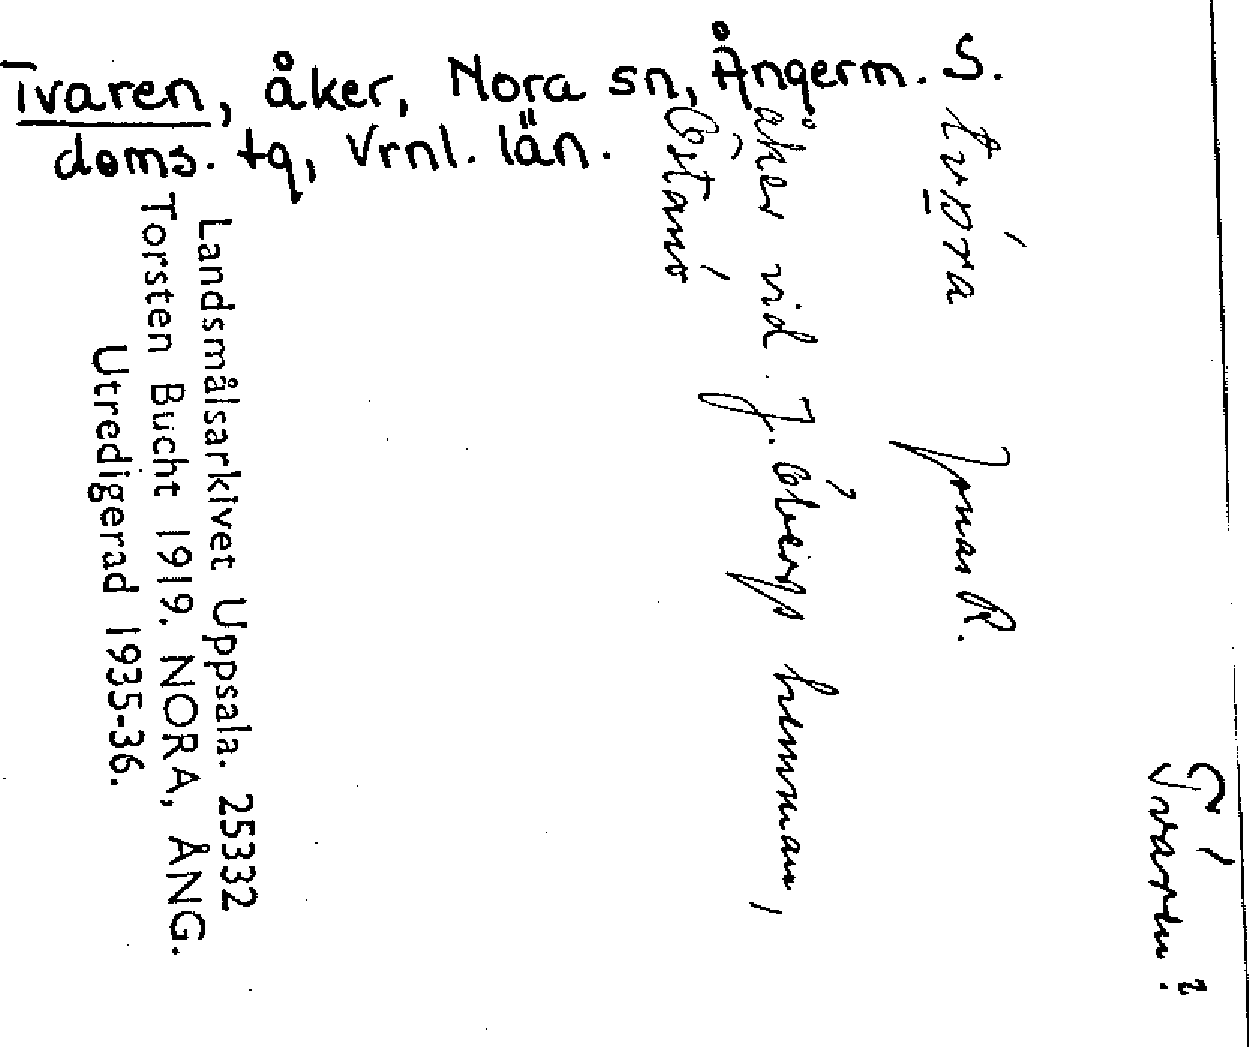 Tvaren, åker, Nora sn, Ångerm. S.
doms. tg, Vrnl. län.
Tvären?
Jonas R.
åker vid J. Öbergs hemman,
Östanö
Landsmålsarkivet Uppsala. 25332
Torsten Bucht 1919. NORA, ÅNG.
Utredigerad 1935-36.